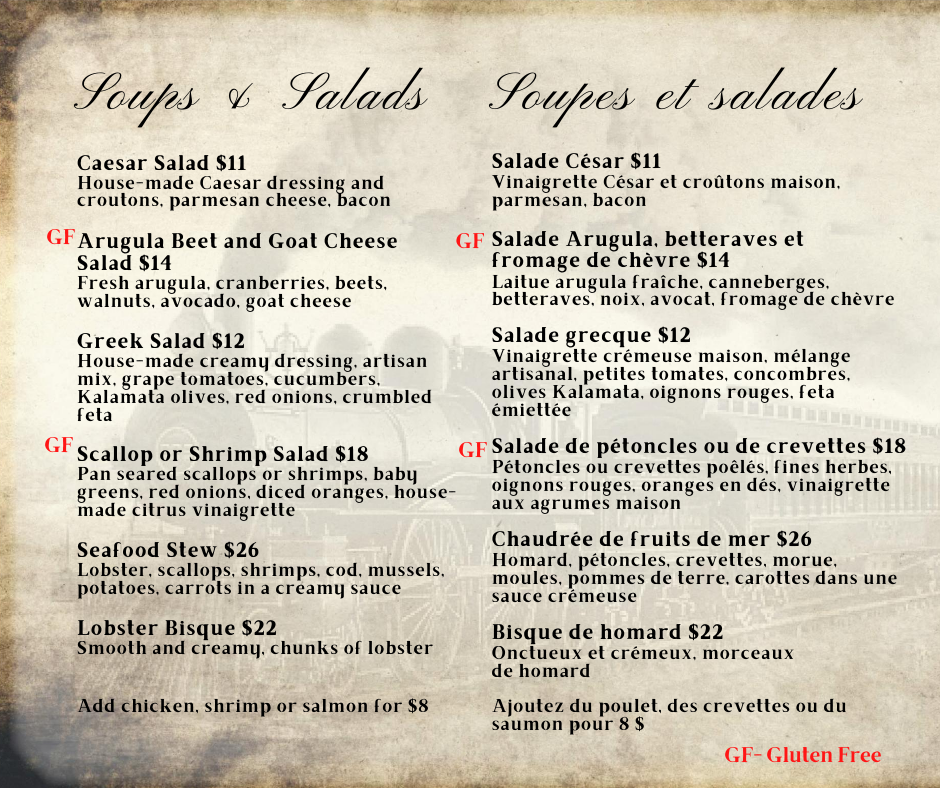 Soups & Salads
Caesar Salad $11
House-made Caesar dressing and
croutons, parmesan cheese, bacon
GF Arugula Beet and Goat Cheese
Salad $14
Fresh arugula, cranberries, beets,
walnuts, avocado, goat cheese
Greek Salad $12
House-made creamy dressing, artisan
mix, grape tomatoes, cucumbers,
Kalamata olives, red onions, crumbled
feta
GF Scallop or Shrimp Salad $18
Pan seared scallops or shrimps, baby
greens, red onions, diced oranges, house-
made citrus vinaigrette
Seafood Stew $26
Lobster, scallops, shrimps, cod, mussels,
potatoes, carrots in a creamy sauce
Lobster Bisque $22
Smooth and creamy, chunks of lobster
Add chicken, shrimp or salmon for $8
Soupes et salades
Salade César $11
Vinaigrette César et croûtons maison,
parmesan, bacon
GF Salade Arugula, betteraves et
fromage de chèvre $14
Laitue arugula fraîche, canneberges,
betteraves, noix, avocat, fromage de chèvre
Salade grecque $12
Vinaigrette crémeuse maison, mélange
artisanal, petites tomates, concombres,
olives Kalamata, oignons rouges, feta
émiettée
GF Salade de pétoncles ou de crevettes $18
Pétoncles ou crevettes poêlés, fines herbes,
oignons rouges, oranges en dés, vinaigrette
aux agrumes maison
Chaudrée de fruits de mer $26
Homard, pétoncles, crevettes, morue,
moules, pommes de terre, carottes dans une
sauce crémeuse
Bisque de homard $22
Onctueux et crémeux, morceaux
de homard
Ajoutez du poulet, des crevettes ou du
saumon pour 8 $
GF- Gluten Free